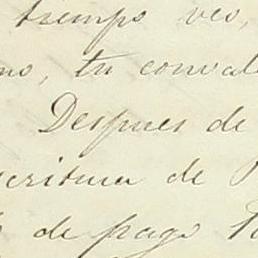 tiempo veo,
no, tu conval
Despues de
scritura de
de pago